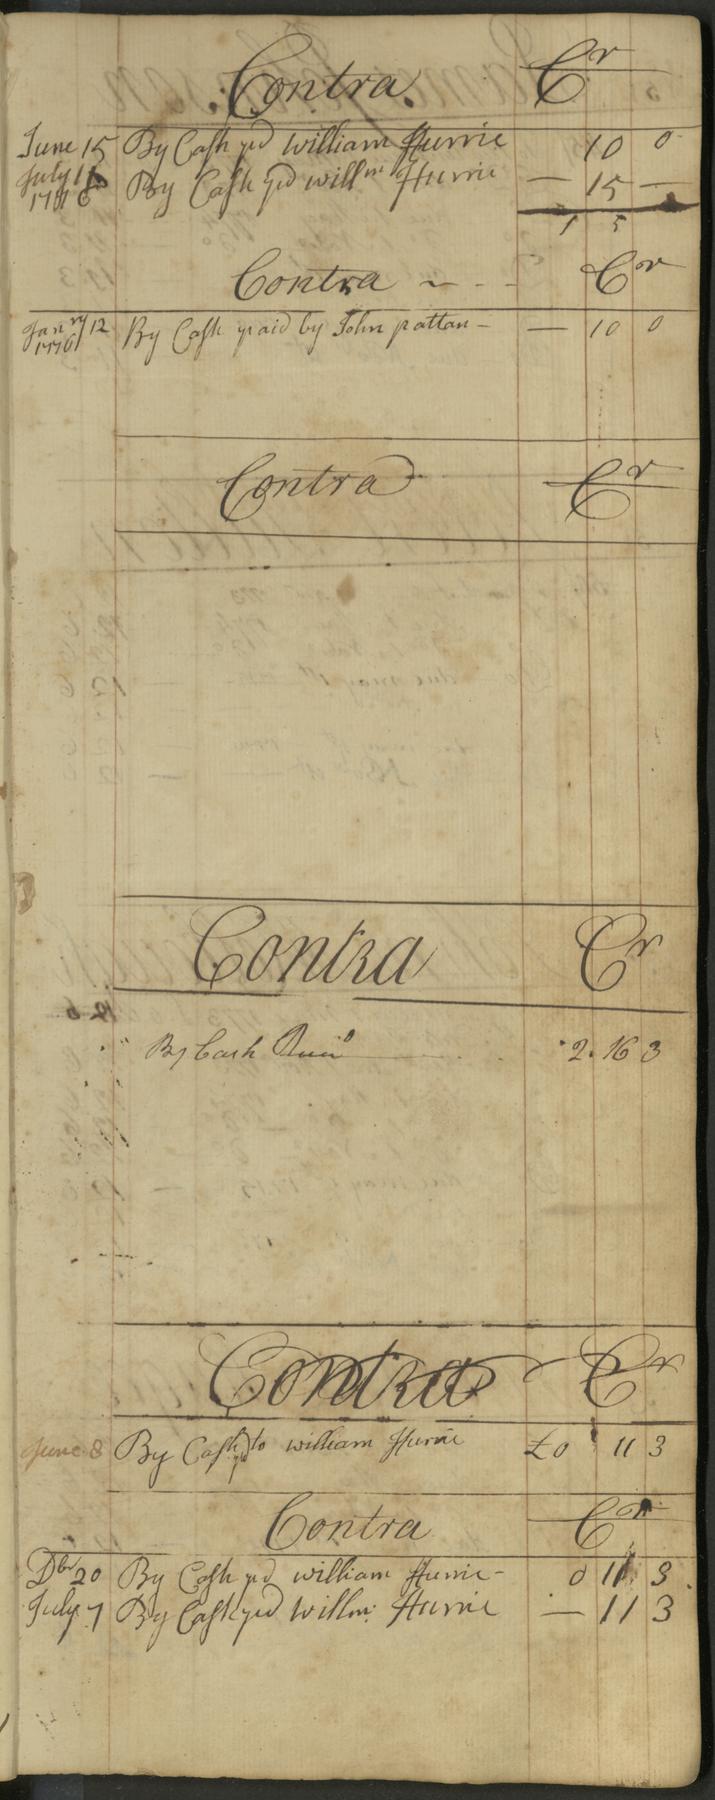 Contra. Cr
June 15 By Cash pd William Hurrie 10 0
July 11 By Cash pd willm Hurrie — 15 —
1776
1 5
Contra ~ - - Cr
Janry 12 By Cash paid by John pattan — — 10 0
1776
Contra Cr
Contra Cr
By Cash 2. 16 3
Contra Cr
June 8 By Cash pd to william Hurrie £0 11 3
Contra Cr
Dbr 20 By Cash pd william Hurrie - 0 11 3
July 7 By Cash pd Willm: Hurrie — 11 3